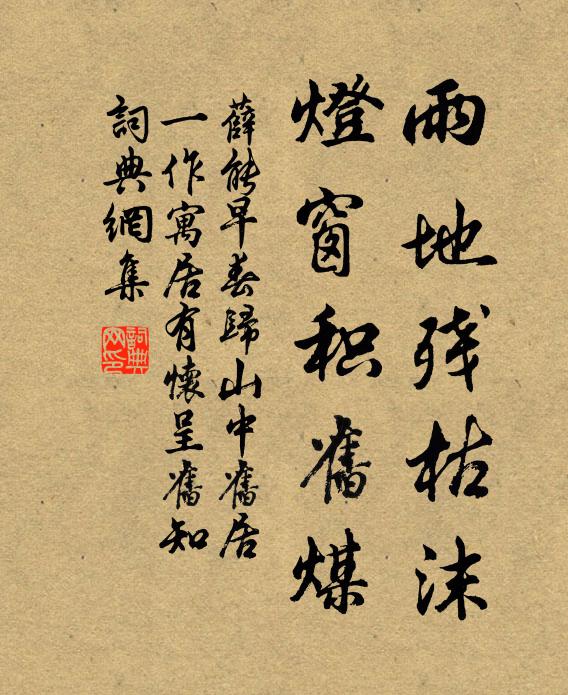 雨地残枯沫
燈窗积舊煤
薛能早春歸山中舊居
一作寓居有懷呈舊知
詞典網集
詞典网印